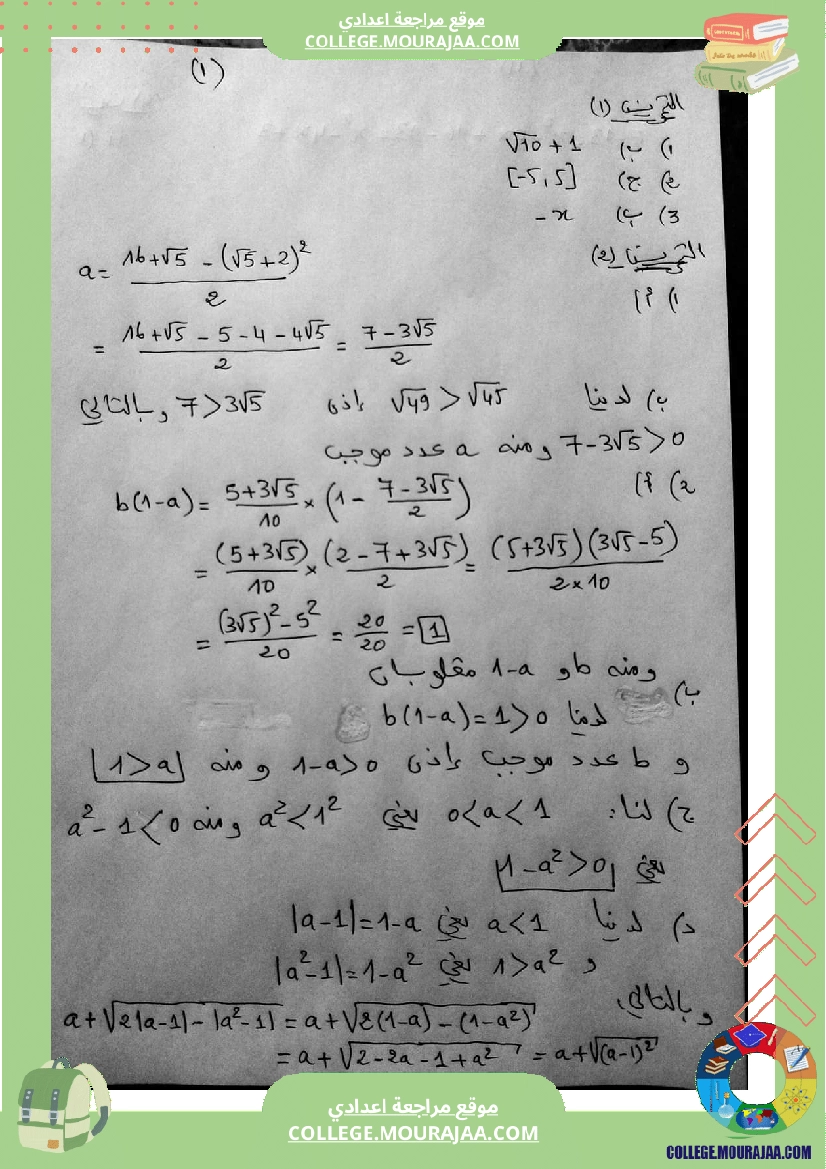 موقع مراجعة اعدادي
COLLEGE.MOURAJAA.COM
(1)
التمرين (1)
1) ب) √10 + 1
2) ج) [-5, 5]
3) ب) -x
التمرين (2)
1) أ)
a = (16+√5 - (√5+2)²)/2
= (16+√5 - 5 - 4 - 4√5)/2 = (7 - 3√5)/2
ب) لدينا √49 > √45 إذن 7 > 3√5 وبالتالي
7-3√5 > 0 ومنه a عدد موجب
2) أ)
b(1-a) = (5+3√5)/10 × (1 - (7-3√5)/2)
= (5+3√5)/10 × (2-7+3√5)/2 = (5+3√5)(3√5-5)/(2×10)
= ((3√5)² - 5²)/20 = 20/20 = 1
ومنه b و 1-a مقلوبان
ب) لدينا b(1-a) = 1 > 0
و b عدد موجب إذن 1-a > 0 ومنه 1 > a
ج) لنا: 0 < a < 1 يعني a² < 1² ومنه a² - 1 < 0
يعني 1 - a² > 0
د) لدينا a < 1 يعني |a-1| = 1-a
و 1 > a² يعني |a²-1| = 1-a²
وبالتالي:
a + √(2|a-1| - |a²-1|) = a + √(2(1-a) - (1-a²))
= a + √(2-2a-1+a²) = a + √((a-1)²)
موقع مراجعة اعدادي
COLLEGE.MOURAJAA.COM
COLLEGE.MOURAJAA.COM